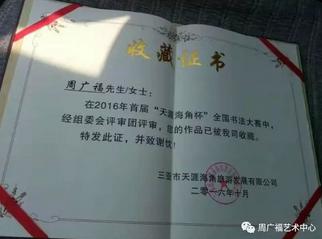 收藏证书
周广福先生/女士：
在2016年首届“天涯海角杯”全国书法大赛中，
经组委会评审团评审，您的作品已被我司收藏。
特发此证，并致谢忱！
三亚市天涯海角旅游发展有限公司
二零一六年十月
周广福艺术中心